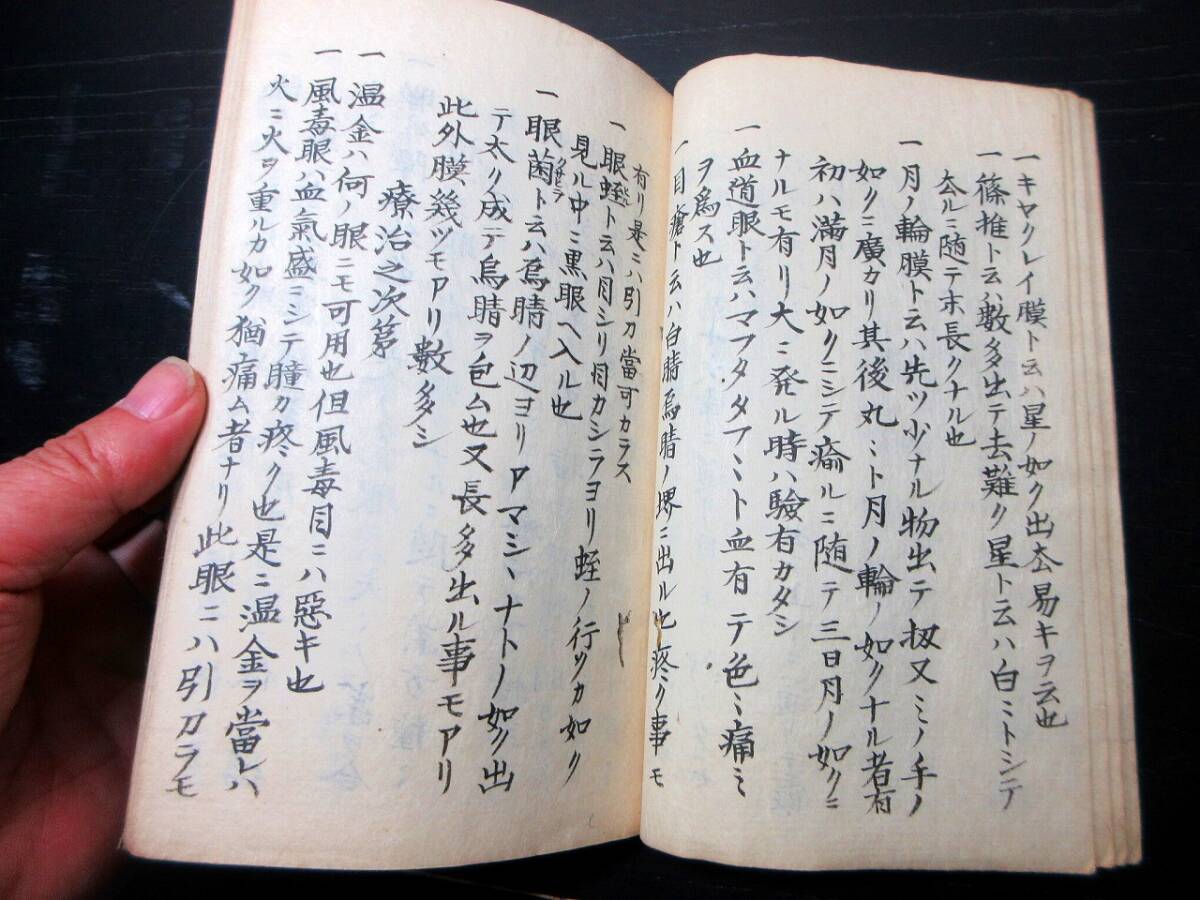 一キヤクレイ膜ト云ハ星ノ如ク出去易キヲ云也
一篠推ト云ハ数多出テ去難ク星ト云ハ白ミトシテ
去ルニ随テ末長クナル也
一月ノ輪膜ト云ハ先ツ少ナル物出テ扨又ミノ手ノ
如クニ廣カリ其後丸ミト月ノ輪ノ如クナル者有
初ハ満月ノ如クニシテ瘉ルニ随テ三日月ノ如クニ
ナルモ有リ大ニ発ル時ハ驗有カタシ
一血道眼ト云ハマブタタアミト血有テ色ミ痛ミ
ヲ為ス也
一目瘡ト云ハ白睛烏睛ノ堺ニ出ル也疼ク事モ
有リ是ニハ引刀當可カラス
一眼蛭ト云ハ月シリ月カシラヨリ蛭ノ行ツカ如ク
見ル中ニ黒眼ヘ入ル也
一眼菌ト云ハ烏睛ノ辺ヨリアマシヽナトノ如ク出
テ太ク成テ烏睛ヲ包ム也又長多出ル事モアリ
此外膜幾ツモアリ數タシ
療治之次第
一温金ハ何ノ眼ニモ可用也但風毒目ニハ惡キ也
一風毒眼ハ血氣盛ニシテ瞳カ疼ク也是ニ温金ヲ當レハ
火ニ火ヲ重ルカ如ク猶痛ム者ナリ此眼ニハ引刀ラモ